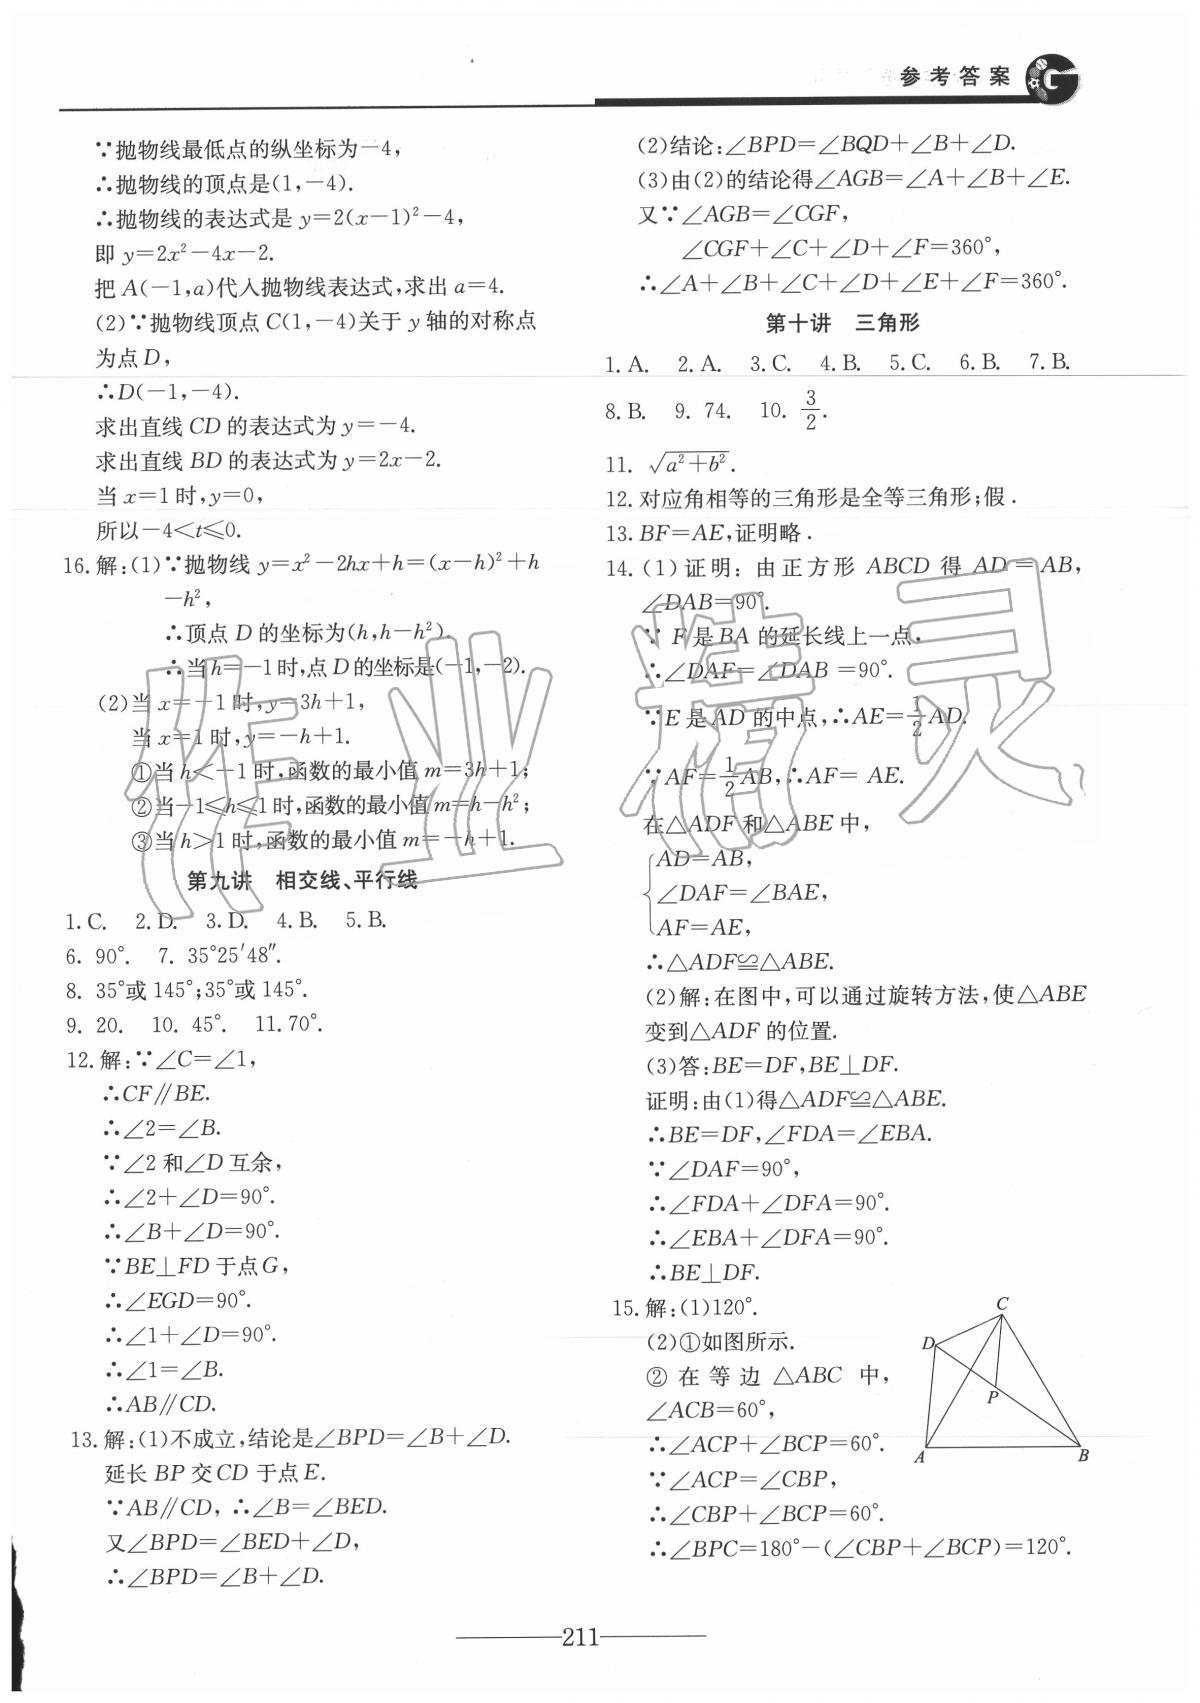 参考答案
∵抛物线最低点的纵坐标为－4，
∴抛物线的顶点是(1,－4).
∴抛物线的表达式是 y=2(x－1)²－4，
即 y=2x²－4x－2.
把 A(－1,a)代入抛物线表达式,求出 a=4.
(2)∵抛物线顶点 C(1,－4)关于 y 轴的对称点
为点 D，
∴D(－1,－4).
求出直线 CD 的表达式为 y=－4.
求出直线 BD 的表达式为 y=2x－2.
当 x=1 时,y=0，
所以－4<t≤0.
16. 解:(1)∵抛物线 y=x²－2hx+h=(x－h)²+h
－h²，
∴顶点 D 的坐标为(h,h－h²).
∴当 h=－1 时,点 D 的坐标是(－1,－2).
(2)当 x=－1 时,y=3h+1，
当 x=1 时,y=－h+1.
①当 h<－1 时,函数的最小值 m=3h+1;
②当－1≤h≤1 时,函数的最小值 m=h－h²;
③当 h>1 时,函数的最小值 m=－h+1.
第九讲　相交线、平行线
1. C.　2. D.　3. D.　4. B.　5. B.
6. 90°.　7. 35°25′48″.
8. 35°或 145°;35°或 145°.
9. 20.　10. 45°.　11. 70°.
12. 解:∵∠C=∠1，
∴CF∥BE.
∴∠2=∠B.
∵∠2 和∠D 互余，
∴∠2+∠D=90°.
∴∠B+∠D=90°.
∵BE⊥FD 于点 G，
∴∠EGD=90°.
∴∠1+∠D=90°.
∴∠1=∠B.
∴AB∥CD.
13. 解:(1)不成立,结论是∠BPD=∠B+∠D.
延长 BP 交 CD 于点 E.
∵AB∥CD, ∴∠B=∠BED.
又∠BPD=∠BED+∠D，
∴∠BPD=∠B+∠D.
(2)结论:∠BPD=∠BQD+∠B+∠D.
(3)由(2)的结论得∠AGB=∠A+∠B+∠E.
又∵∠AGB=∠CGF，
∠CGF+∠C+∠D+∠F=360°，
∴∠A+∠B+∠C+∠D+∠E+∠F=360°.
第十讲　三角形
1. A.　2. A.　3. C.　4. B.　5. C.　6. B.　7. B.
8. B.　9. 74.　10. 3/2.
11. √(a²+b²).
12. 对应角相等的三角形是全等三角形;假.
13. BF=AE,证明略.
14. (1)证明: 由正方形 ABCD 得 AD=AB，
∠DAB=90°.
∵F 是 BA 的延长线上一点，
∴∠DAF=∠DAB=90°.
∵E 是 AD 的中点,∴AE=1/2AD.
∵AF=1/2AB,∴AF=AE.
在△ADF 和△ABE 中，
AD=AB，
∠DAF=∠BAE，
AF=AE，
∴△ADF≌△ABE.
(2)解:在图中,可以通过旋转方法,使△ABE
变到△ADF 的位置.
(3)答:BE=DF,BE⊥DF.
证明:由(1)得△ADF≌△ABE.
∴BE=DF,∠FDA=∠EBA.
∵∠DAF=90°，
∴∠FDA+∠DFA=90°.
∴∠EBA+∠DFA=90°.
∴BE⊥DF.
15. 解:(1)120°.
(2)①如图所示.
② 在等边△ABC 中，
∠ACB=60°，
∴∠ACP+∠BCP=60°.
∵∠ACP=∠CBP，
∴∠CBP+∠BCP=60°.
∴∠BPC=180°－(∠CBP+∠BCP)=120°.
C
D
P
A
B
211
作业精灵